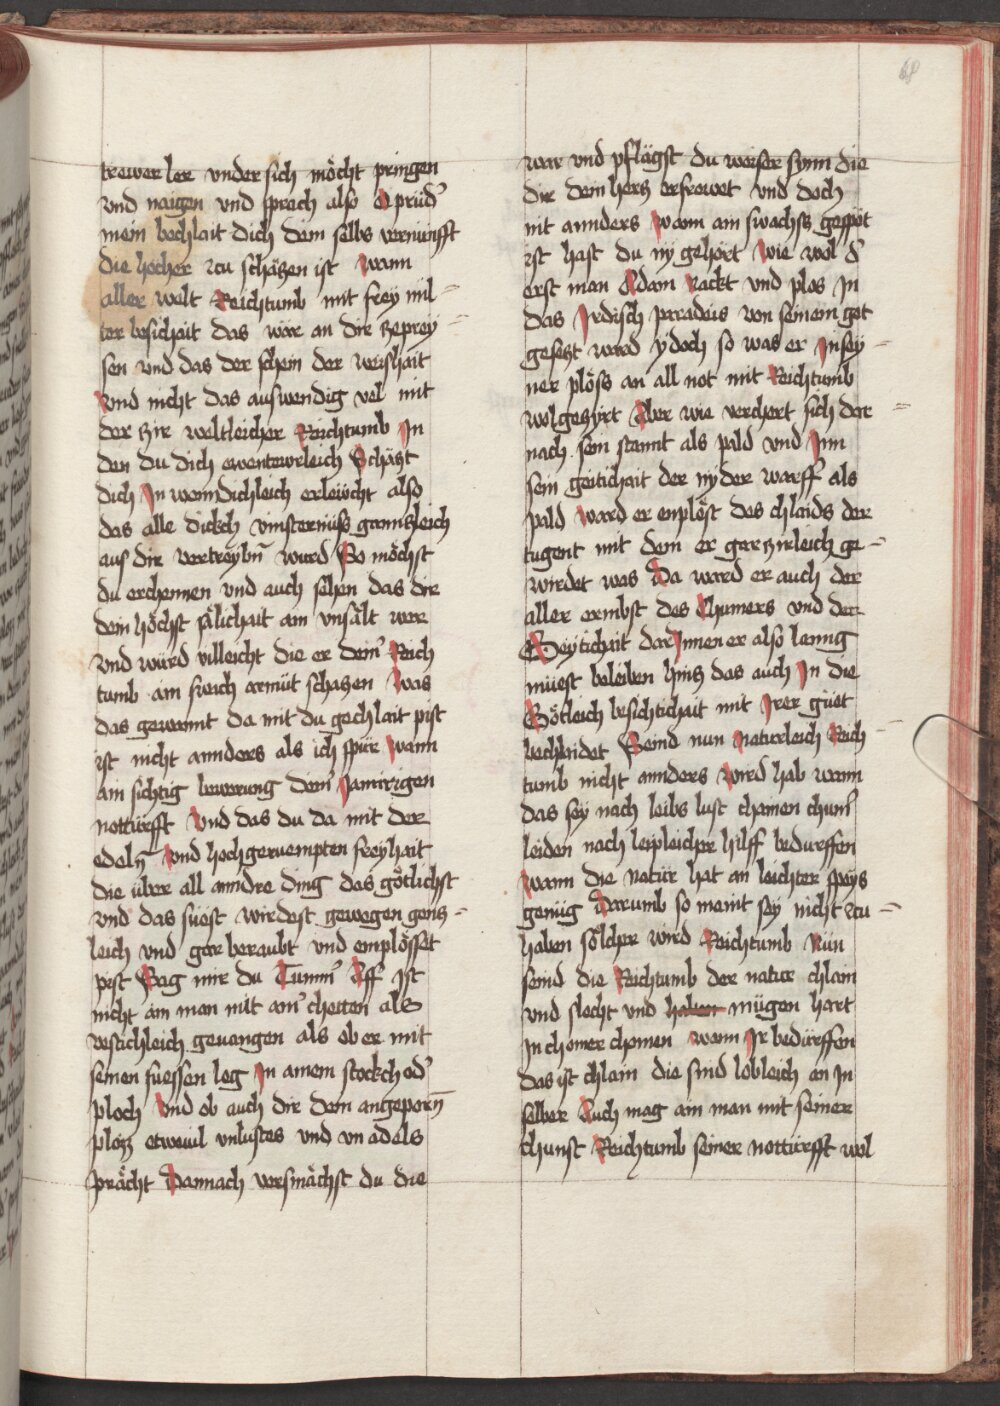 48
trewer ler vnder sich möcht pringen
vnd naigen vnd sprach also O prud̉
mein bechlait dich dein selbs vernunfft
die hocher zcu schäczen ist Wann
aller welt Reichtumb mit frey mil-
ter besichait das wär an dir zeprey-
sen vnd das der schein der weishait
Vnd nicht das auswendig vel mit
der zir weltleicher Reichtumb In
den du dich ewentewrleich Schäczt
dich In wenndichleich erlewcht also
das alle dickch vinsternüss gannczleich
aus dir vertreybn̄ wurd So möchst
du erchennen vnd auch sehen das dir
dein höchst sälichait ain vnsält wer
vnd würd villeicht die er dein̄ Reich
tumb ain freich armüt schaczen Was
das gewannt da mit du gechlait pist
ist nicht annders als ich spür Wann
ain sichtig bewerung dein̄ Jamirigen
nottürfft Vnd das du da mit der
edeln̄ Vnd hochgeruempten freyhait
die über all anndre ding das götlichst
vnd das süest wirdest gewegen gencz-
leich vnd gar beraubt vnd emplösset
pist Sag mir du Tumm̄ Aff Ist
nicht ain man mit ain̄ chetten als
vestichleich geuangen als ob er mit
seinen fuessen leg In ainem stockch od̉
ploch Vnd ob auch dir dein angeporn̄
plöz etweuil vnlustes vnd vn adels
prächt Dannach versmächst du die
war vnd pflägst du weiser synn die
dir dein hercz erfrewet vnd doch
nit annders Wann ain swachs gespöt
ist hast du ny gehört Wie wol d̉
erst man Adam nackt vnd plos In
das Irdisch paradeis von seinem got
geseczt ward ydoch so was er In sey-
ner plöss an all not mit Reichtumb
wolgeczyrt Aber wie verchert sich dar-
nach sein stannt als pald vnd Im
sein geitichait der nyder warff als
pald ward er enplöst des chlaids der
tugent mit dem er gar zirleich ge-
wirdet was Da ward er auch der
aller ermbst des Chumers vnd der
Geytichait dar Innen er also lanng
müest beleiben hincz das auch In die
Götleich besichtichait mit Irer güet
bechlaidet Seind nun Natureleich Reich-
tumb nicht annders Wird hab wann
das sy nach leibs lust chainen chum̄
leiden nach leipleicher hilff bedürffen
Wann die natur hat an leichter speys
genüg Darumb so maint sy nicht zcu-
haben sölcher wird Reichtumb Nün
seind die Reichtumb der natur chlain
vnd slecht vnd haben mügen hart
In chainer chomen wann Ir bedürffen
das ist chlain die sind lobleich an In
selber Auch mag ain man mit seiner
chunst Reichtumb seiner notturfft wol